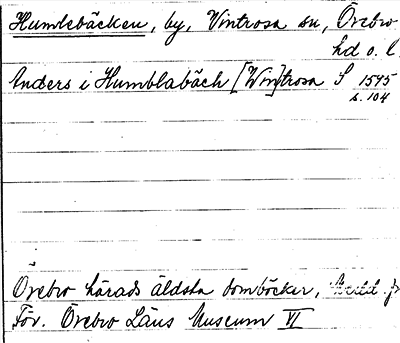 Humlebäcken, by, Vintrosa sn, Örebro
hd o. l.
Anders i Humblabäch [Win]trosa S 1545
s. 104
Örebro härads äldsta domböcker, Medd. fr
För. Örebro Läns Museum VI